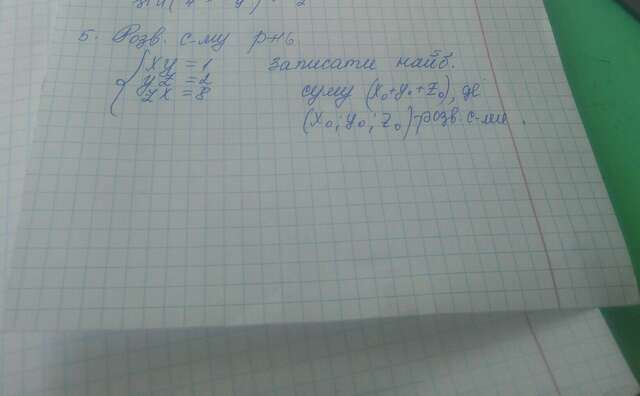 5. Розв. с-му р-нь
xy = 1
yz = 2
zx = 8
записати найб.
суму (x₀+y₀+z₀), де
(x₀; y₀; z₀)-розв. с-ми.